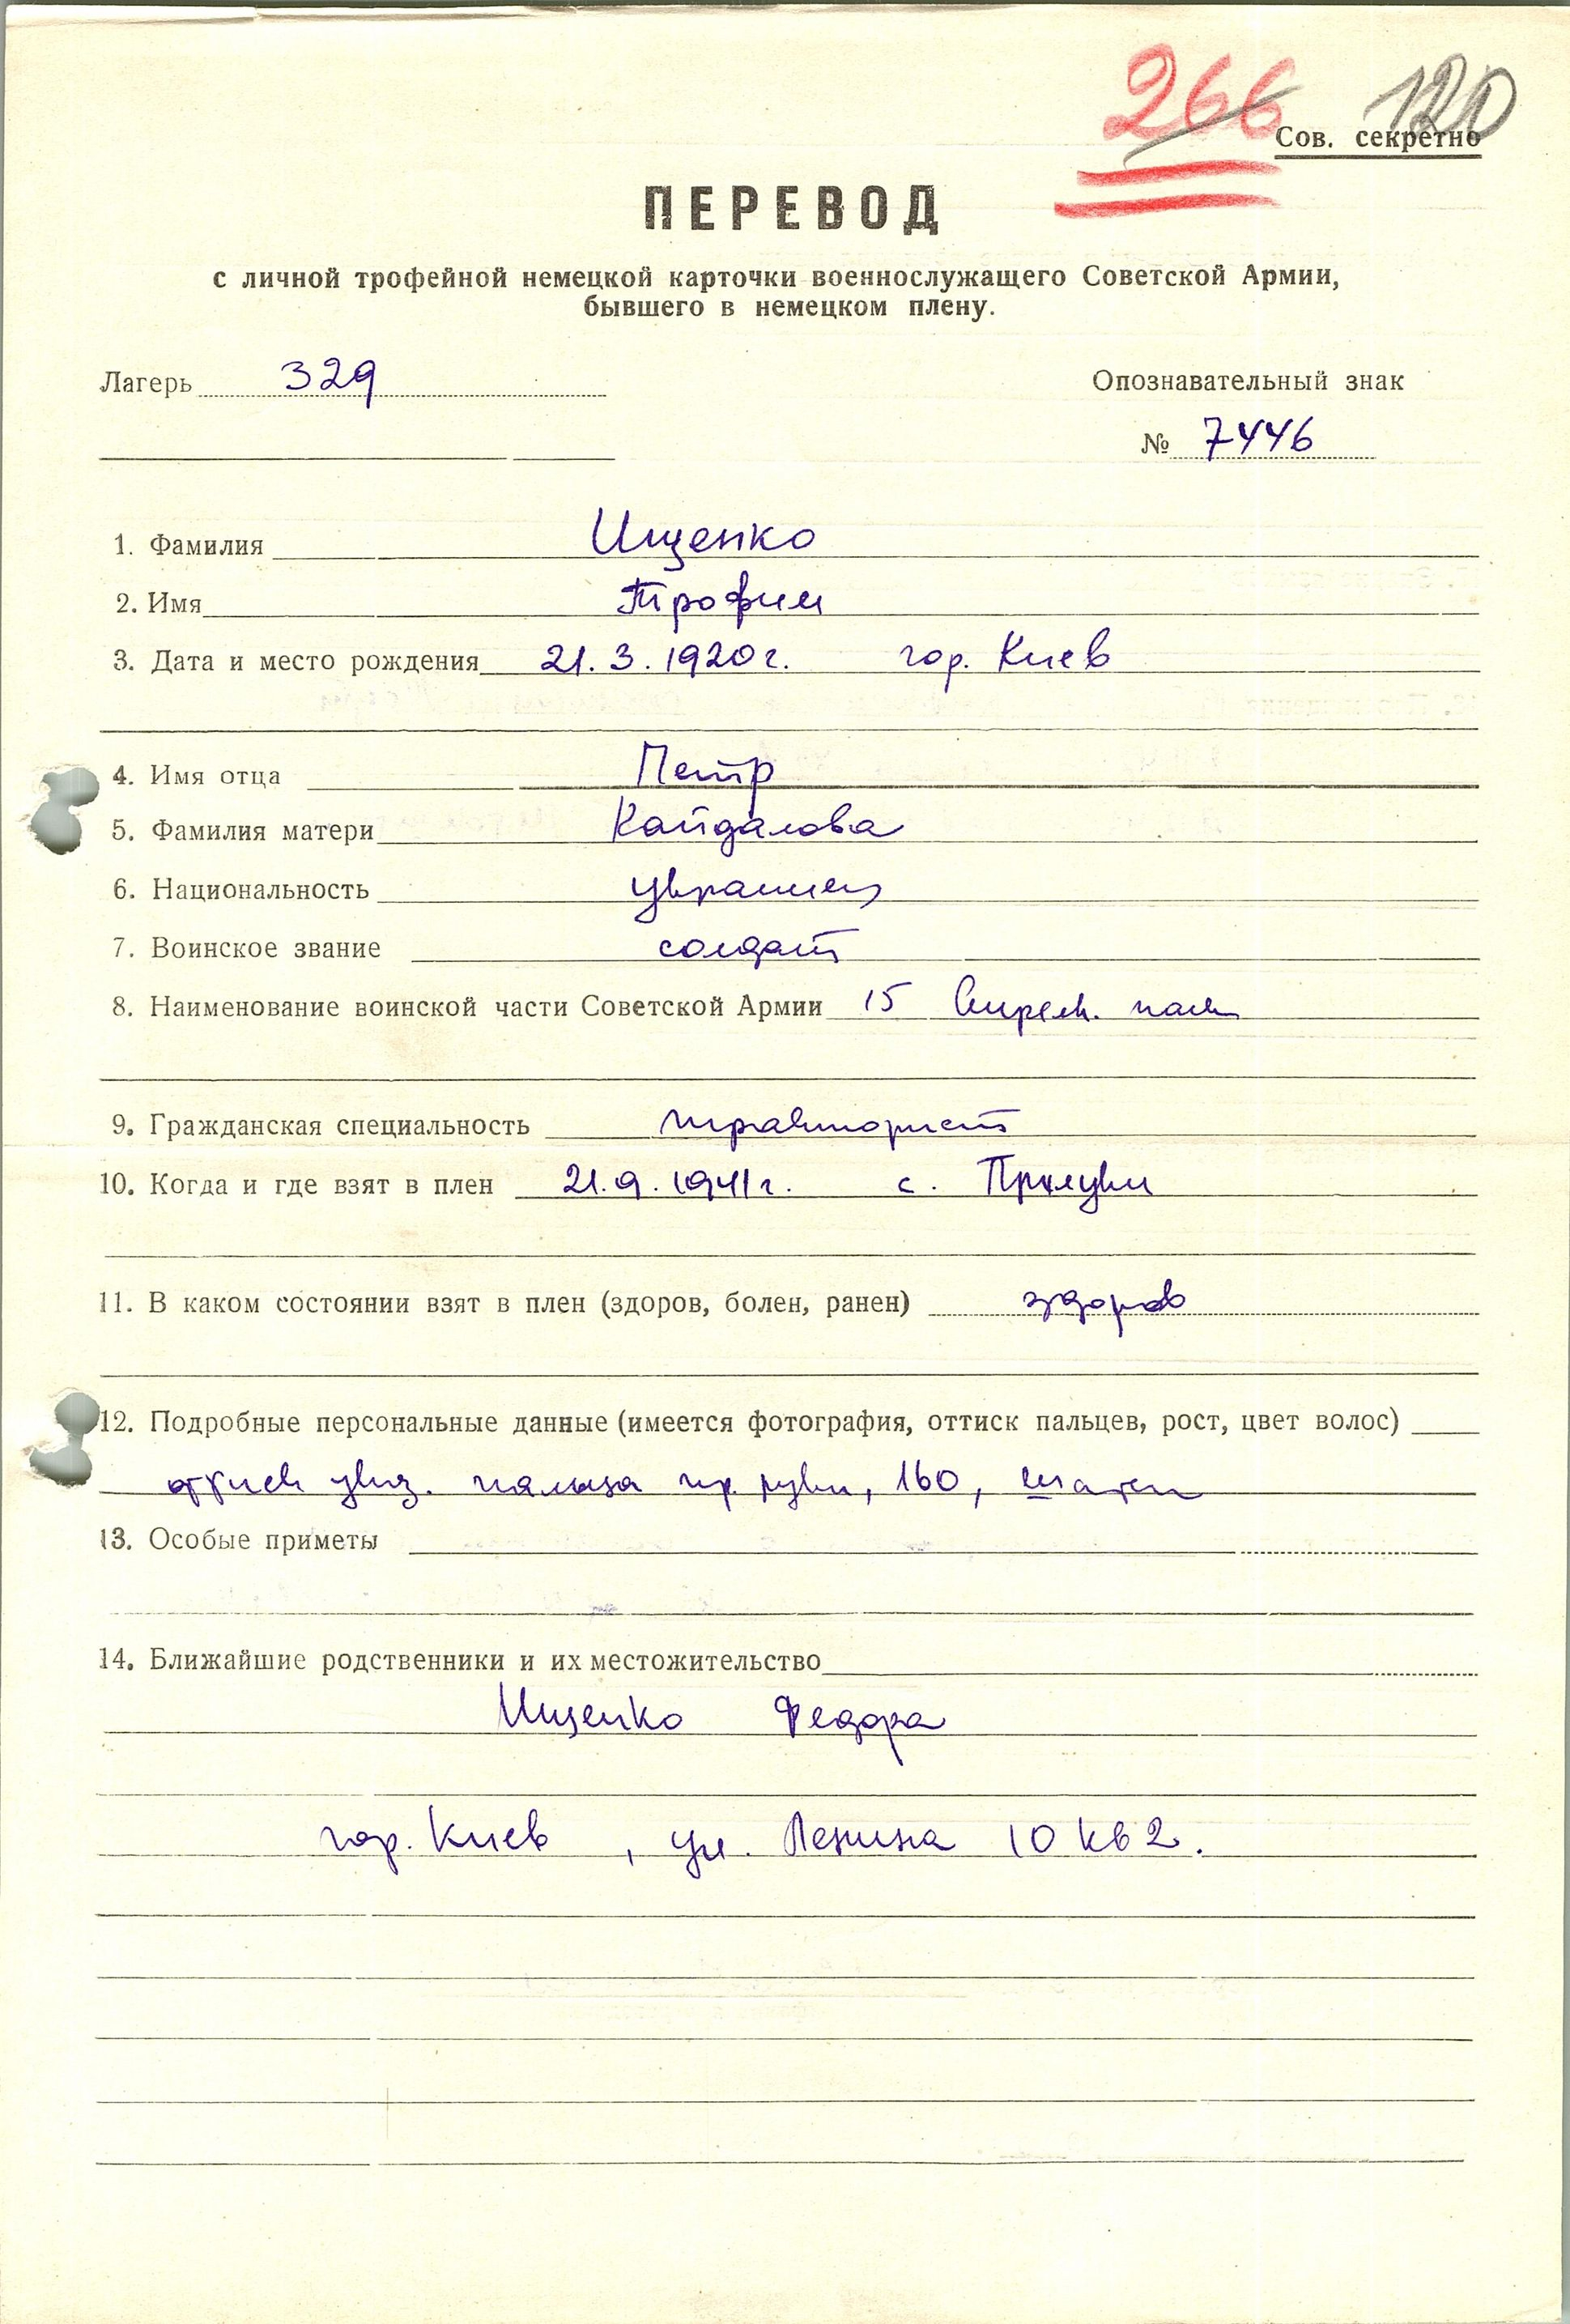 266 120
Сов. секретно
ПЕРЕВОД
с личной трофейной немецкой карточки военнослужащего Советской Армии,
бывшего в немецком плену.
Лагерь 329
Опознавательный знак
№ 7446
1. Фамилия Ищенко
2. Имя Трофим
3. Дата и место рождения 21.3.1920г. гор. Киев
4. Имя отца Петр
5. Фамилия матери Кайдалова
6. Национальность украинец
7. Воинское звание солдат
8. Наименование воинской части Советской Армии 15 Стрелк. полк
9. Гражданская специальность тракторист
10. Когда и где взят в плен 21.9.1941г. с. Прилуки
11. В каком состоянии взят в плен (здоров, болен, ранен) здоров
12. Подробные персональные данные (имеется фотография, оттиск пальцев, рост, цвет волос)
оттиск указ. пальца пр. руки, 160, шатен
13. Особые приметы
14. Ближайшие родственники и их местожительство
Ищенко Федора
гор. Киев, ул. Ленина 10 кв 2.